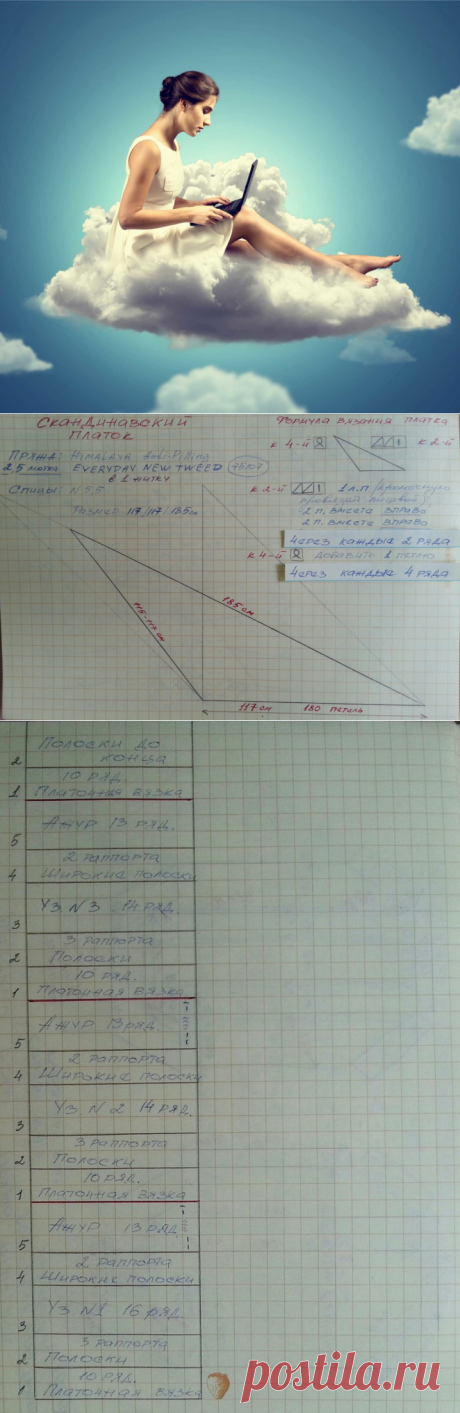 Скандинавский
платок
Формула вязания платка
Пряжа: Himalaya Anti-Pilling
2,5 мотка EVERYDAY NEW TWEED
в 1 нитку
Спицы: N 5,5
Размер 117/117/185см
к 4-й
к 2-й
к 2-й 1 л.п
2 п. вместе вправо
2 п. вместе вправо
через каждые 2 ряда
к 4-й добавить 1 петлю
через каждые 4 ряда
185 см
115-117 см
117 см 180 петель
2 Полоски до
конца
10 ряд.
1 Платочная вязка
5 Ажур 13 ряд.
2 раппорта
4 Широкие полоски
3 Уз. N 3 14 ряд.
3 раппорта
2 Полоски
10 ряд.
1 Платочная вязка
5 Ажур 13 ряд.
2 раппорта
4 Широкие полоски
3 Уз. N 2 14 ряд.
3 раппорта
2 Полоски
10 ряд.
1 Платочная вязка
5 Ажур 13 ряд.
2 раппорта
4 Широкие полоски
3 Уз. N1 16 ряд.
3 раппорта
2 Полоски
10 ряд.
1 Платочная вязка
postila.ru